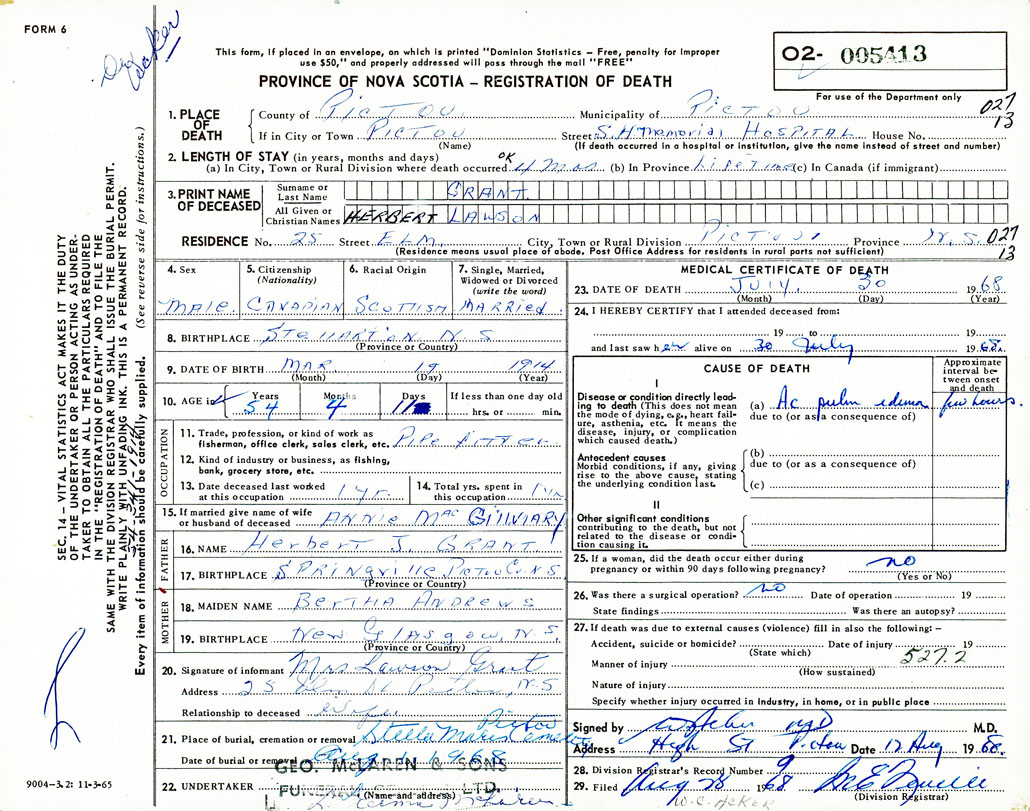 FORM 6
This form, if placed in an envelope, on which is printed "Dominion Statistics – Free, penalty for improper
use $50," and properly addressed will pass through the mail "FREE"
O2- 005413
PROVINCE OF NOVA SCOTIA – REGISTRATION OF DEATH
For use of the Department only
027
13
1. PLACE OF DEATH
County of PICTOU Municipality of PICTOU
If in City or Town PICTOU Street S.H. Memorial HOSPITAL House No.
(Name) (If death occurred in a hospital or institution, give the name instead of street and number)
2. LENGTH OF STAY (in years, months and days) OK
(a) In City, Town or Rural Division where death occurred 4 Mos (b) In Province Lifetime (c) In Canada (if immigrant)
3. PRINT NAME OF DECEASED
Surname or Last Name GRANT
All Given or Christian Names HERBERT LAWSON
RESIDENCE No. 25 Street ELM City, Town or Rural Division PICTOU Province N.S. 027
13
(Residence means usual place of abode. Post Office Address for residents in rural parts not sufficient)
SEC. 14 – VITAL STATISTICS ACT MAKES IT THE DUTY
OF THE UNDERTAKER OR PERSON ACTING AS UNDER-
TAKER TO OBTAIN ALL THE PARTICULARS REQUIRED
IN THE "REGISTRATION OF DEATH" AND TO FILE THE
SAME WITH THE DIVISION REGISTRAR WHO SHALL ISSUE THE BURIAL PERMIT.
WRITE PLAINLY WITH UNFADING INK. THIS IS A PERMANENT RECORD.
Every item of information should be carefully supplied. (See reverse side for instructions.)
4. Sex
Male
5. Citizenship
(Nationality)
CANADIAN
6. Racial Origin
SCOTTISH
7. Single, Married,
Widowed or Divorced
(write the word)
MARRIED
8. BIRTHPLACE Stellarton N.S
(Province or Country)
9. DATE OF BIRTH MAR 19 1914
(Month) (Day) (Year)
10. AGE in
Years Months If less than one day old
54 4 11 hrs. or min.
OCCUPATION
11. Trade, profession, or kind of work as
fisherman, office clerk, sales clerk, etc. Pipe fitter
12. Kind of industry or business, as fishing,
bank, grocery store, etc.
13. Date deceased last worked
at this occupation 1 yr.
14. Total yrs. spent in
this occupation
15. If married give name of wife
or husband of deceased ANNIE MacGillivary
FATHER
16. NAME Herbert J. GRANT
17. BIRTHPLACE SPRINGVILLE Pictou Co. N.S
(Province or Country)
MOTHER
18. MAIDEN NAME BERTHA ANDREWS
19. BIRTHPLACE New Glasgow, N.S.
(Province or Country)
20. Signature of informant Mrs Lawson Grant
Address 25 Elm St Pictou, N.S
Relationship to deceased Wife
21. Place of burial, cremation or removal Stella Maris Pictou
Date of burial or removal 1968
GEO. McLAREN & SONS
FUNERAL LTD.
22. UNDERTAKER
(Name and address)
MEDICAL CERTIFICATE OF DEATH
23. DATE OF DEATH JULY 30 1968
(Month) (Day) (Year)
24. I HEREBY CERTIFY that I attended deceased from:
19 to 19
and last saw her alive on 30 July 1968.
CAUSE OF DEATH
Approximate
interval be-
tween onset
and death
I
Disease or condition directly lead-
ing to death (This does not mean
the mode of dying, e.g., heart fail-
ure, asthenia, etc. It means the
disease, injury, or complication
which caused death.)
(a) Ac pulm edema few hours.
due to (or as a consequence of)
Antecedent causes
Morbid conditions, if any, giving
rise to the above cause, stating
the underlying condition last.
(b)
due to (or as a consequence of)
(c)
II
Other significant conditions
contributing to the death, but not
related to the disease or condi-
tion causing it.
25. If a woman, did the death occur either during
pregnancy or within 90 days following pregnancy? no
(Yes or No)
26. Was there a surgical operation? no Date of operation 19
State findings Was there an autopsy?
27. If death was due to external causes (violence) fill in also the following: –
Accident, suicide or homicide? Date of injury 19
(State which)
527.2
Manner of injury
(How sustained)
Nature of injury
Specify whether injury occurred in Industry, in home, or in public place
Signed by MD M.D.
Address High St Pictou Date 12 Aug 1968.
28. Division Registrar's Record Number 9
29. Filed Aug 28 1968
(Division Registrar)
W.C. ACKER
9004-3.2: 11-3-65